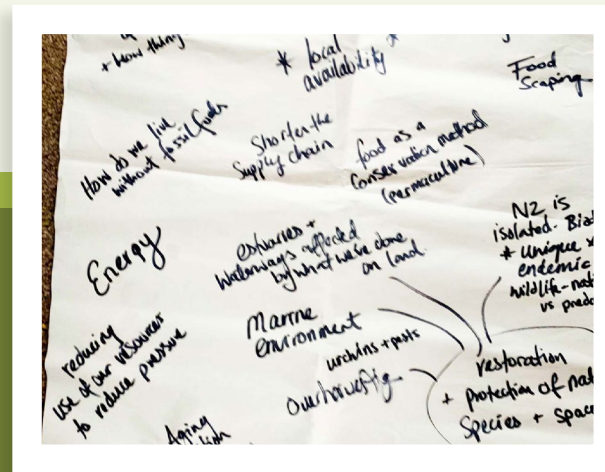 + how thing
* local
availability
*
Food
Scaping
How do we live
without fossil fuels
Shorten the
Supply chain
food as a
Conservation method
(permaculture)
Energy
estuaries +
waterways affected
by what we've done
on land.
NZ is
isolated. Biod
* Unique +
endemic
wildlife - nat
vs preda
Marine
environment
reducing
use of our resources
to reduce pressure
urchins + pests
Overharvesting
restoration
+ protection of nat
Species + spac
Aging